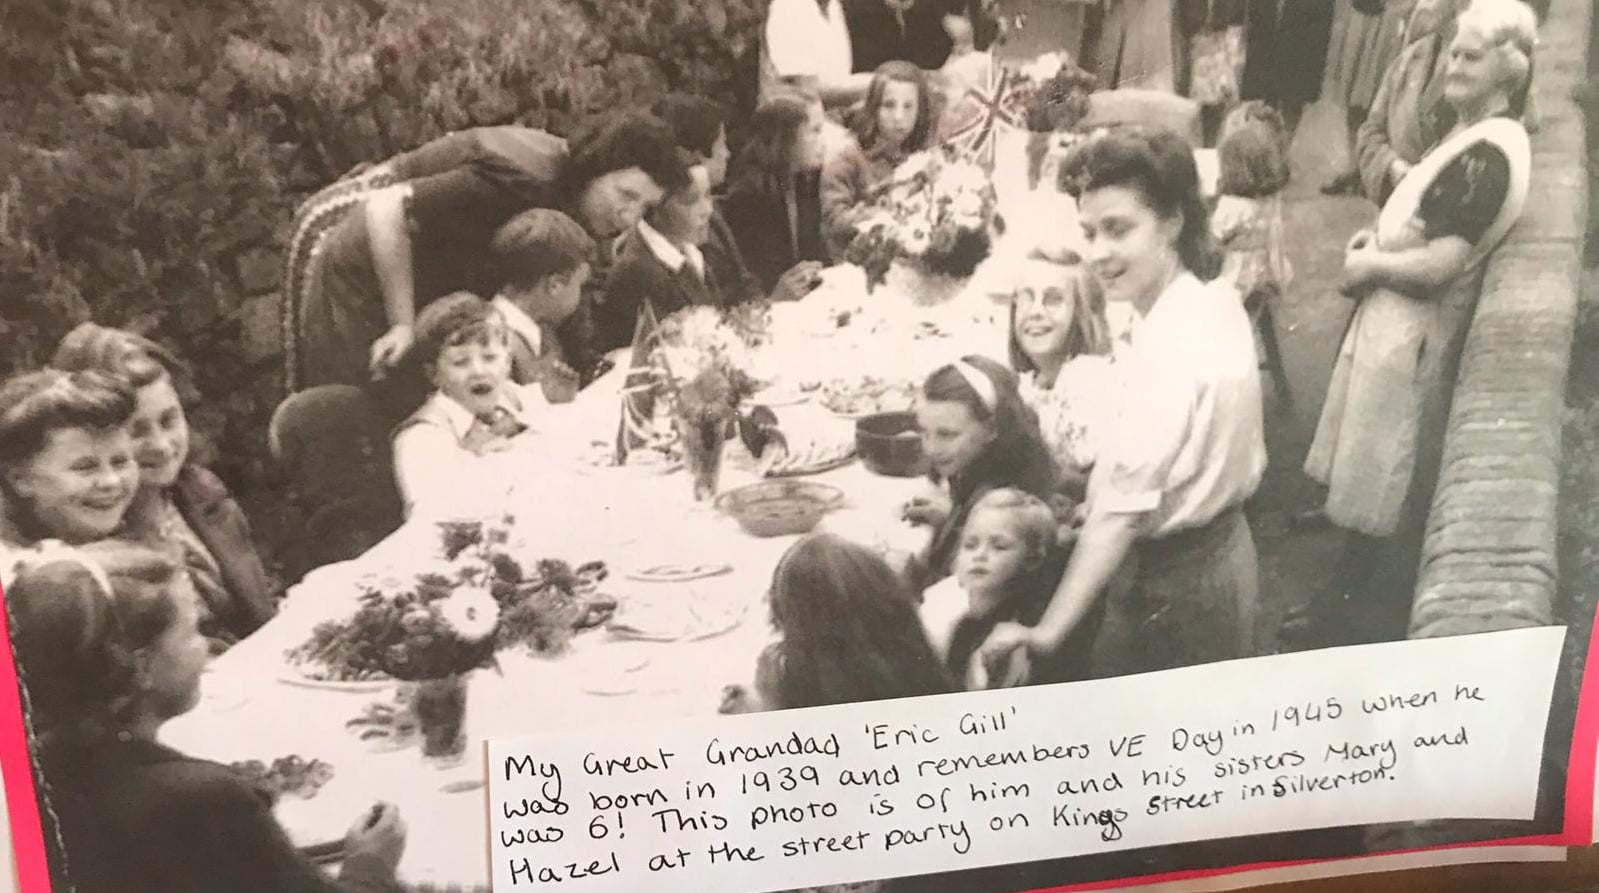 My Great Grandad 'Eric Gill'
was born in 1939 and remembers VE Day in 1945 when he
was 6! This photo is of him and his sisters Mary and
Hazel at the street party on Kings Street in Silverton.